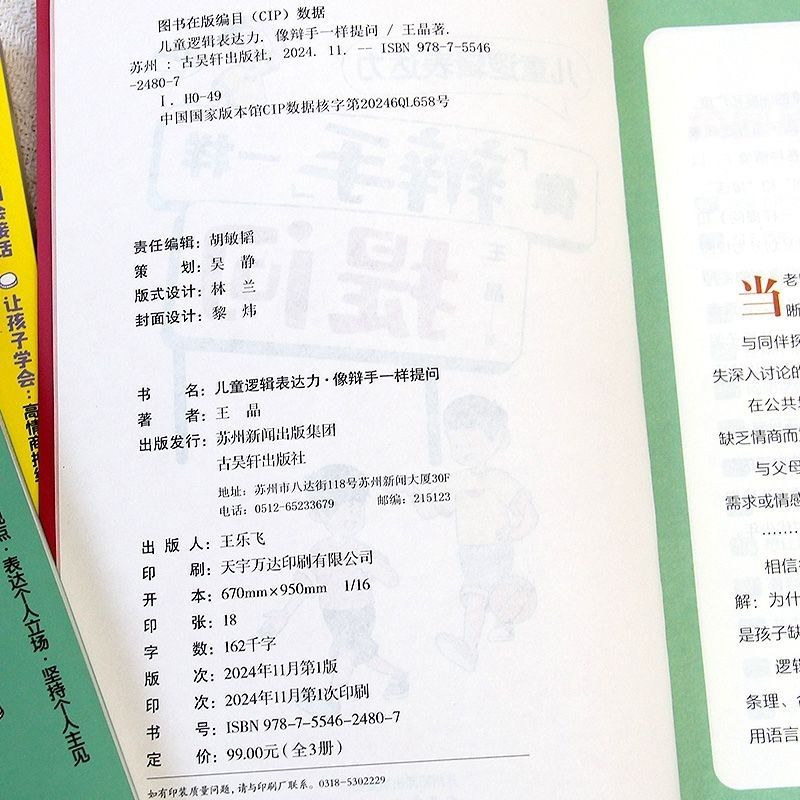 图书在版编目（CIP）数据
儿童逻辑表达力. 像辩手一样提问 / 王晶著.
苏州 : 古吴轩出版社, 2024. 11. -- ISBN 978-7-5546
-2480-7
Ⅰ. H0-49
中国国家版本馆CIP数据核字第20246QL658号
责任编辑：胡敏韬
策　　划：吴　静
版式设计：林　兰
封面设计：黎　炜
书　　名：儿童逻辑表达力·像辩手一样提问
著　　者：王　晶
出版发行：苏州新闻出版集团
古吴轩出版社
地址：苏州市八达街118号苏州新闻大厦30F
电话：0512-65233679　　邮编：215123
出 版 人：王乐飞
印　　刷：天宇万达印刷有限公司
开　　本：670mm×950mm　1/16
印　　张：18
字　　数：162千字
版　　次：2024年11月第1版
印　　次：2024年11月第1次印刷
书　　号：ISBN 978-7-5546-2480-7
定　　价：99.00元（全3册）
如有印装质量问题，请与印刷厂联系。0318-5302229
接话
让孩子学会：高情商
点·表达个人立场·坚持个人主见
当
老
晰
与同伴探
失深入讨论的
在公共
缺乏情商而
与父母
需求或情感
………
相信
解：为什
是孩子缺
逻辑
条理、
用语言